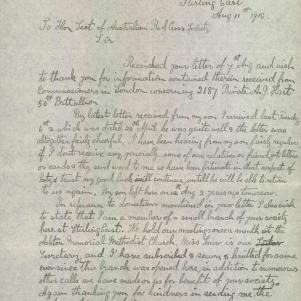 Stirling East
Aug 11th 1918
To Hon Sect of Australian Red Cross Society
Sir
Received your letter of 7th Aug and wish
to thank you for information contained therein received from
Commissioners in London concerning 2187 Private A.J. Hart
50th Battallion
My latest letter received from my son I received last Sunday
which was dated April he was quite well & the letter was
altogether fairly cheerful, I have been hearing from my son fairly regular
if I don't receive any generally some of our relatives or friends get letters
or cards & they send word to me so have been fortunate in that respect of
lately & trust my good luck will continue until he will be able to return
to us again. My son left here on Aug 2 years ago tomorrow.
In reference to donations mentioned in your letter I also wish
to state that I am a member of a small branch of your society
here at Stirling East. We hold our meetings once a month at the
Memorial Methodist Church, Miss is our
Secretary, and I have subscribed & sewn & knitted for same
ever since this branch was opened here in addition to numerous
other calls we have made on us for benefit of your society
Again thanking you for kindness in sending me the